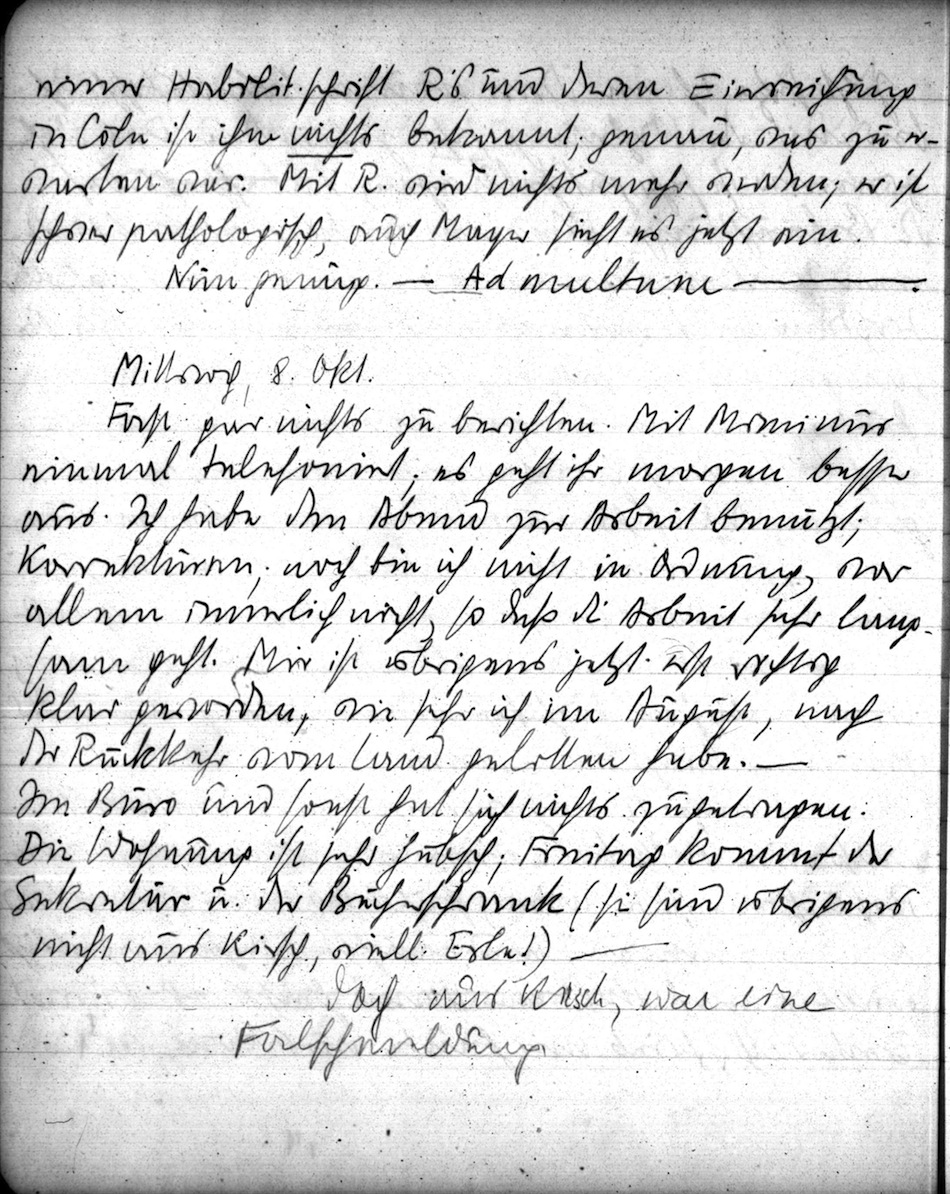 einer Habilit.schrift R's und deren Einreichung
in Cöln ist ihm nichts bekannt; genau, was zu er-
warten war. Mit R. wird nichts mehr werden; er ist
schwer pathologisch, auch Mayer sieht es jetzt ein.
Nun genug. — Ad multum —.
Mittwoch, 8. Okt.
Fast gar nichts zu berichten. Mit Mimi nur
einmal telefoniert; es geht ihr morgen besser
aus. Ich habe den Abend zur Arbeit benutzt;
Korrekturen; noch bin ich nicht in Ordnung, vor
allem innerlich nicht, so daß die Arbeit sehr lang-
sam geht. Mir ist übrigens jetzt erst richtig
klar geworden, wie sehr ich im August, nach
der Rückkehr vom Land gelitten habe. —
Im Büro und sonst hat sich nichts zugetragen.
Die Wohnung ist sehr hübsch; Freitag kommt der
Sekretär u. der Bücherschrank (sie sind übrigens
nicht aus Kirsch, viell. Erle!) —
doch aus Kirsch, war eine
Falschmeldung